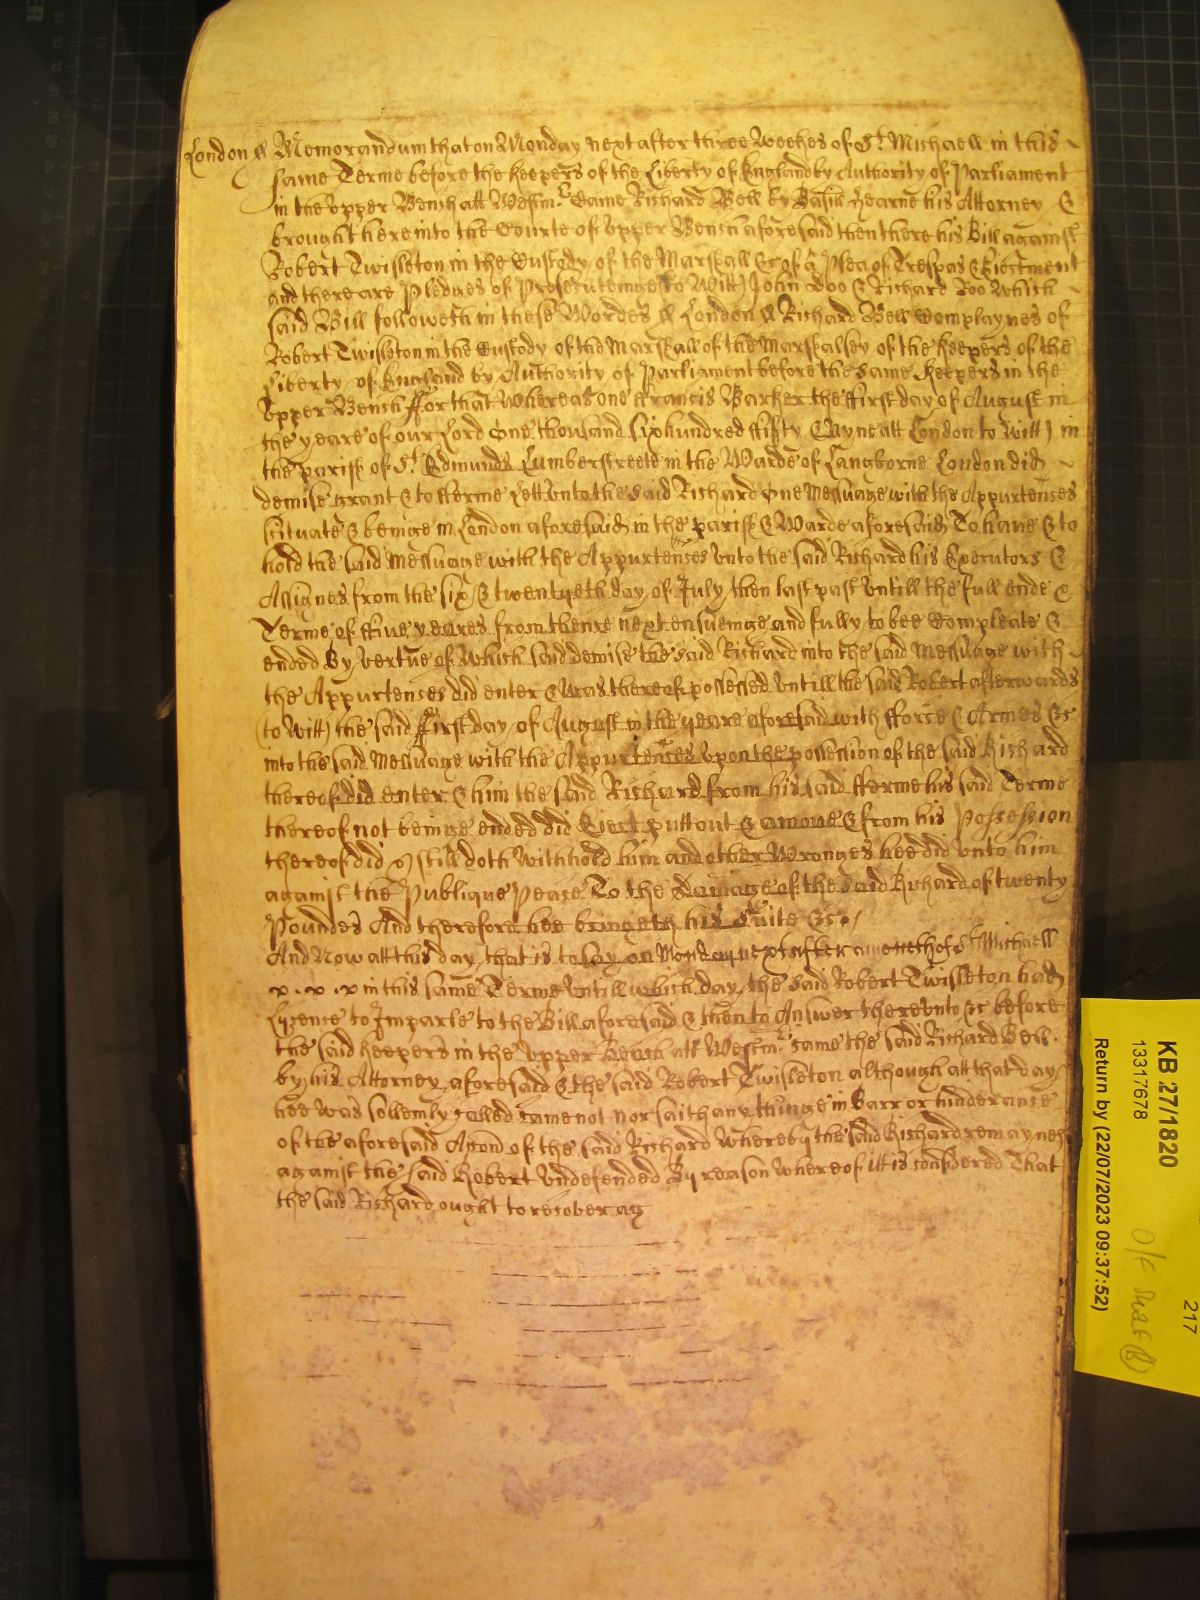 London ss Memorandum that on Monday next after three Weekes of St Michaell in this
same Terme before the Keepers of the Liberty of England by Authority of Parliament
in the Upper Bench att Westm. Came Richard Bell by Basill Hearne his Attorney &
brought here into the Courte of Upper Bench aforesaid then there his Bill against
Robert Twisleton in the Custody of the Marshall &c of a Plea of Trespas & Eiectment
and there are Pledges of Prosecuteinge to Witt John Doo & Richard Roo Which
said Bill followeth in these Wordes ss London ss Richard Bell Complaynes of
Robert Twisleton in the Custody of the Marshall of the Marshalsey of the Keepers of the
Liberty of England by Authority of Parliament before the same Keepers in the
Upper Bench ffor that Whereas one ffrancis Barker the ffirst day of August in
the yeare of our Lord One thousand six hundred ffifty & Nyne att London to Witt) in
the parish of St Edmunds Lumberstreete in the Warde of Langborne London did
demise grant & to fferme Lett unto the said Richard One Messuage with the Appurtences
scituate & beinge in London aforesaid in the parish & Warde aforesaid To haue & to
hold the said Messuage with the Appurtences unto the said Richard his Executors &
Assignes from the six & twentyeth day of July then last past Untill the full ende &
Terme of ffiue yeares from thence next ensueinge and fully to bee Compleate &
ended By vertue of Which said demise the said Richard into the said Messuage with
the Appurtences did enter & was thereof possessed Untill the said Robert afterwards
(to Witt) the said ffirst day of August in the yeare aforesaid with fforce & Armes &c
into the said Messuage with the Appurtences upon the possession of the said Richard
thereof did enter & him the said Richard from his said fferme his said Terme
thereof not beinge ended did Eiect putt out & amoue & from his Possession
thereof did & still doth Withhold him and other Wronges hee did unto him
against the Publique Peace To the damage of the said Richard of twenty
Poundes And therefore hee bringeth his Suite &c
And Now att this day that is to say on Monday next after a moneth of St Michaell
in this same Terme Untill which day the said Robert Twisleton had
Lycence to Imparle to the Bill aforesaid & then to Answer thereunto &c before
the said Keepers in the Upper Bench att Westm. came the said Richard Bell
by his Attorney aforesaid & the said Robert Twisleton although att that day
hee was sollemly called came not nor saith any thinge in barr or hinderance
of the aforesaid Accon of the said Richard Whereby the said Richard remaynes
against the said Robert Undefended By reason Whereof itt is considered That
the said Richard ought to recover ag
KB 27/1820
13317678
Return by (22/07/2023 09:37:52)
217